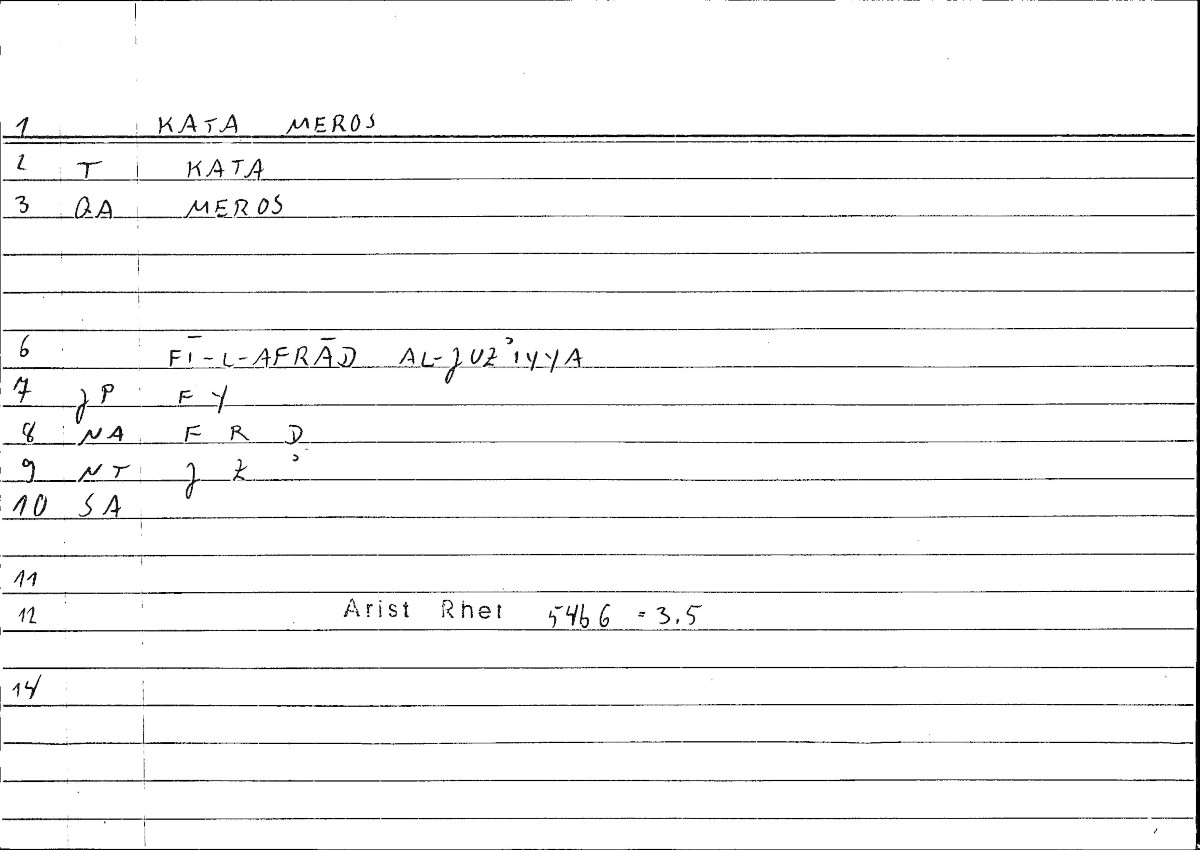 1 KATA MEROS
2 T KATA
3 QA MEROS
6 FĪ-L-AFRĀD AL-JUZʾIYYA
7 JP FY
8 NA F R D
9 NT J Z ʾ
10 SA
11
12 Arist Rhet 54b6 = 3.5
14